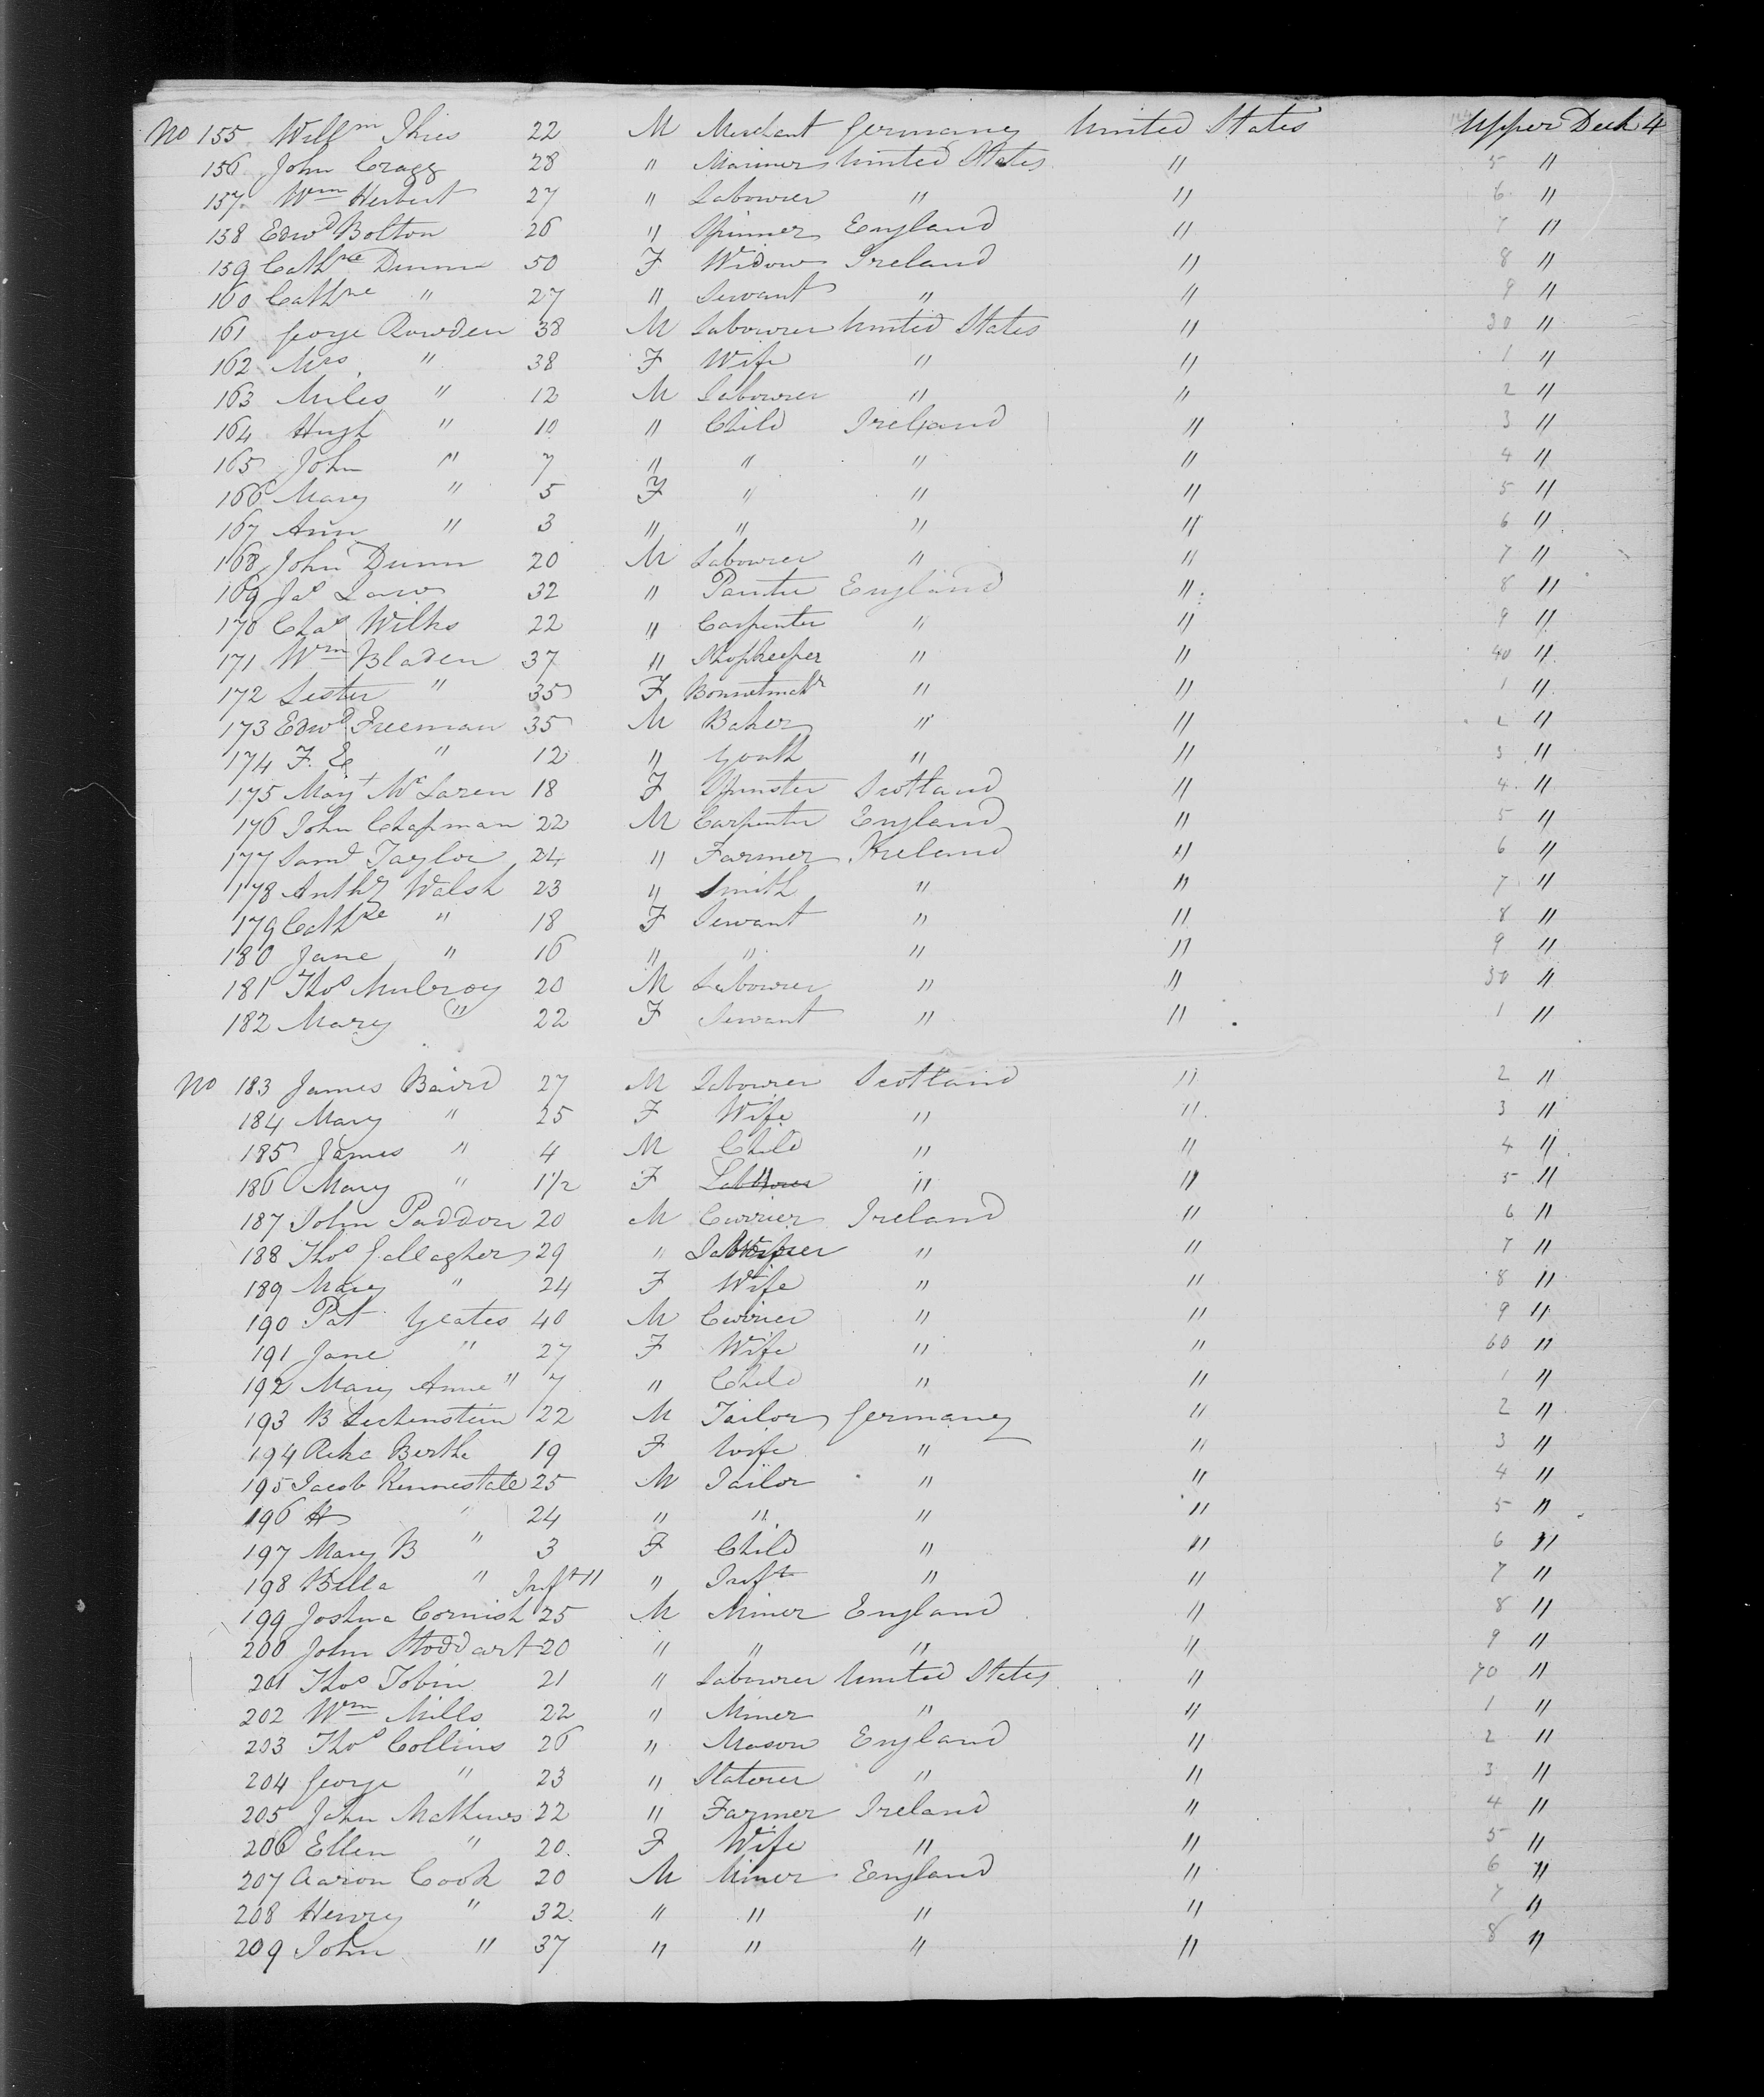 No 155 Willm Thies 22 M Merchant Germany United States Upper Deck 4
156 John Cragg 28 " Mariner United States " 5 "
157 Wm Herbert 27 " Labourer " " 6 "
158 Edwd Bolton 26 " Spinner England " 7 "
159 Cathne Dunn 50 F Widow Ireland " 8 "
160 Cathne " 27 " Servant " " 9 "
161 George Rowden 38 M Labourer United States " 30 "
162 Mrs " 38 F Wife " " 1 "
163 Miles " 12 M Labourer " " 2 "
164 Hugh " 10 " Child Ireland " 3 "
165 John " 7 " " " " 4 "
166 Mary " 5 F " " " 5 "
167 Ann " 3 " " " " 6 "
168 John Dunn 20 M Labourer " " 7 "
169 Jas Laws 32 " Painter England " 8 "
170 Chas Wilks 22 " Carpenter " " 9 "
171 Wm Bladen 37 " Shopkeeper " " 40 "
172 Lester " 35 F Bonnetmakr " " 1 "
173 Edwd Freeman 35 M Baker " " 2 "
174 F. E " 12 " Youth " " 3 "
175 Margt McLaren 18 F Spinster Scotland " 4 "
176 John Chapman 22 M Carpenter England " 5 "
177 Saml Taylor 24 " Farmer Ireland " 6 "
178 Anthy Walsh 23 " Smith " " 7 "
179 Cathne " 18 F Servant " " 8 "
180 Jane " 16 " " " " 9 "
181 Thos Mulroy 20 M Labourer " " 50 "
182 Mary " 22 F Servant " " 1 "
No 183 James Baird 27 M Labourer Scotland " 2 "
184 Mary " 25 F Wife " " 3 "
185 James " 4 M Child " " 4 "
186 Mary " 1 1/2 F Labourer " " " 5 "
187 John Paddon 20 M Currier Ireland " 6 "
188 Thos Gallagher 29 " Labourer " " 7 "
189 Mary " 24 F Wife " " 8 "
190 Pat Yeates 40 M Currier " " 9 "
191 Jane " 27 F Wife " " 60 "
192 Mary Anne " 7 " Child " " 1 "
193 B Lechenstein 22 M Tailor Germany " 2 "
194 Reka Berthe 19 F Wife " " 3 "
195 Jacob Kennestale 25 M Tailor " " 4 "
196 H " 24 " " " " 5 "
197 Mary B " 3 F Child " " 6 "
198 Bella " Inft 11 " Inft " " 7 "
199 Joshua Cornish 25 M Miner England " 8 "
200 John Stoddart 20 " " " " 9 "
201 Thos Tobin 21 " Labourer United States " 70 "
202 Wm Mills 22 " Miner " " 1 "
203 Thos Collins 26 " Mason England " 2 "
204 George " 23 " " " 3 "
205 John Mathews 22 " Farmer Ireland " 4 "
206 Ellen " 20 F Wife " " 5 "
207 Aaron Cook 20 M Miner England " 6 "
208 Henry " 32 " " " " 7 "
209 John " 37 " " " " 8 "